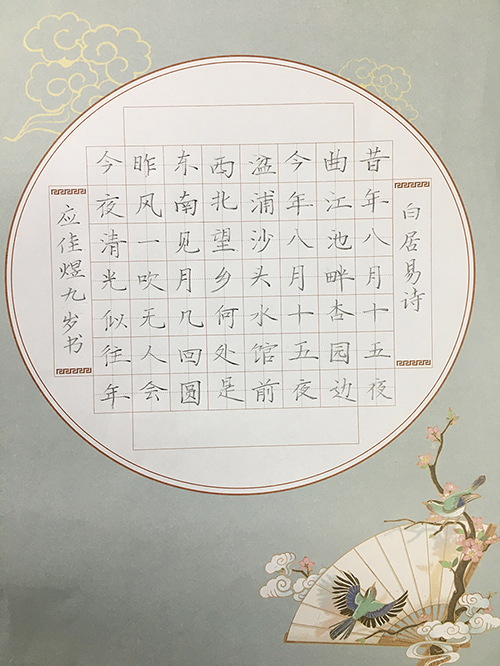 白居易诗
昔年八月十五夜
曲江池畔杏园边
今年八月十五夜
湓浦沙头水馆前
西北望乡何处是
东南见月几回圆
昨风一吹无人会
今夜清光似往年
应佳煜九岁书